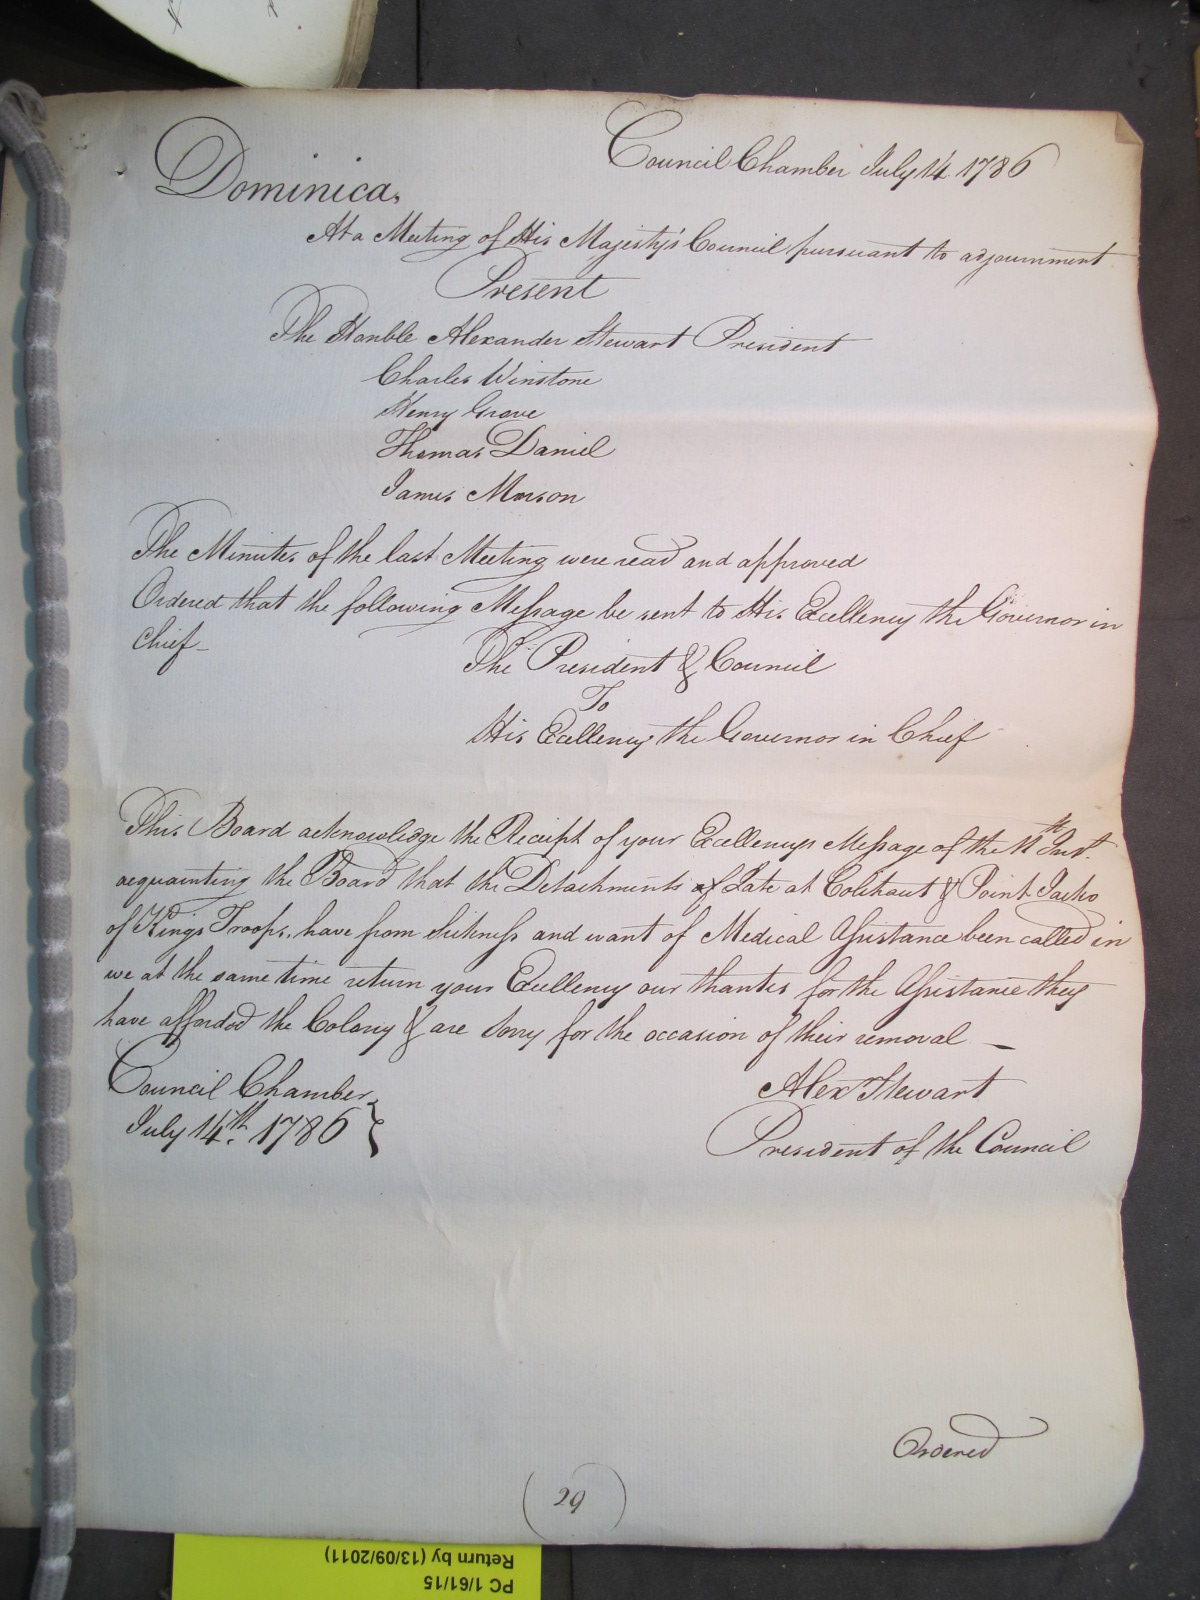 Dominica,
Council Chamber July 14 1786
At a Meeting of His Majesty's Council pursuant to adjournment
Present
The Honble Alexander Stewart President
Charles Winstone
Henry Grove
Thomas Daniel
James Morson
The Minutes of the last Meeting were read and approved
Ordered that the following Message be sent to His Excellency the Governor in
Chief
The President & Council
To
His Excellency the Governor in Chief
This Board acknowledge the Receipt of your Excellencys Message of the 11th Inst.
acquainting the Board that the Detachments of Late at Colihaut & Point Jacko
of Kings Troops, have from Sickness and want of Medical Assistance been called in
we at the same time return your Excellency our thanks for the Assistance they
have afforded the Colony & are Sorry for the occasion of their removal —
Council Chamber
July 14th. 1786
Alex Stewart
President of the Council
Ordered
(29)
PC 1/61/15
Return by (13/09/2011)